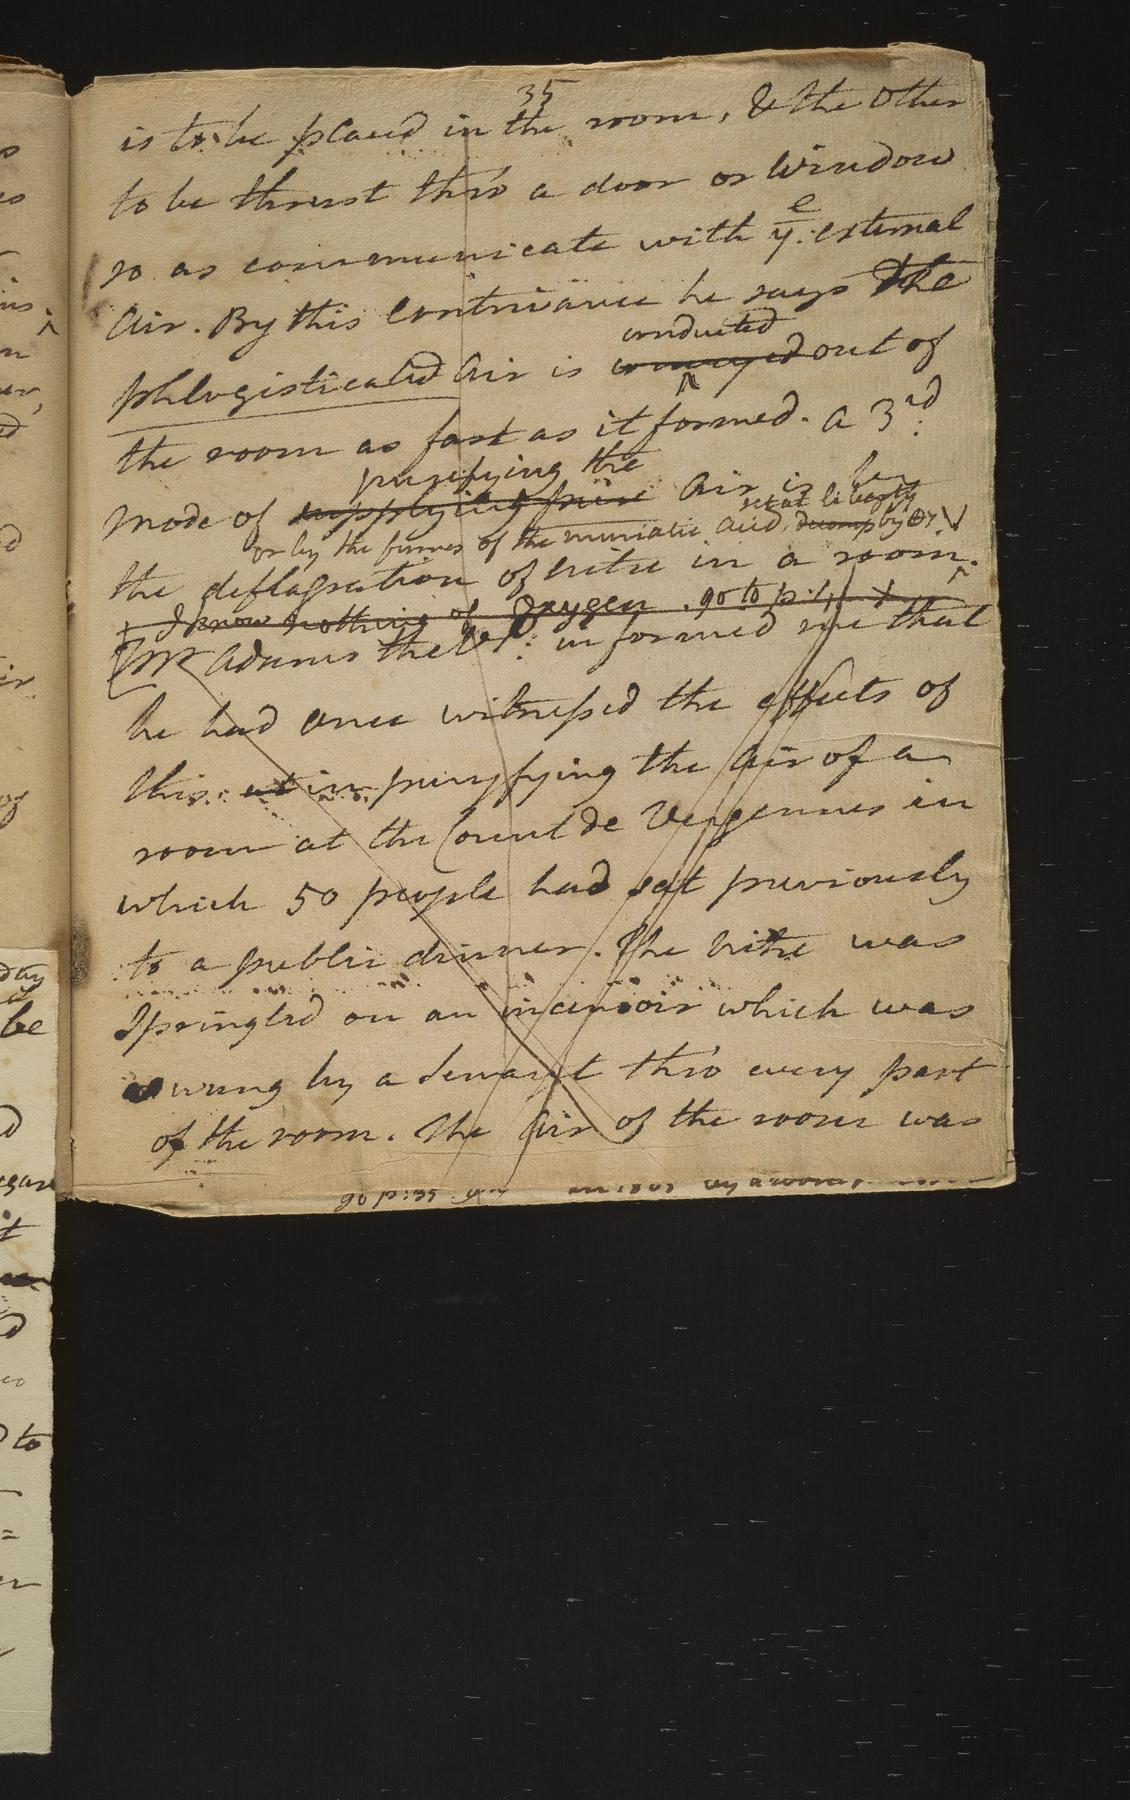 35
is to be placed in the room, & the other
to be thrust thro' a door or window
so as communicate with ye. external
Air. By this contrivance he says the
conducted
phlogisticated Air is conveyed out of
the room as fast as it formed. A 3rd:
purifying the
mode of supplying pure Air is by
set at liberty
or by the fumes of the muriatic acid, decomp by
the deflagration of nitre in a room.
I know nothing of Oxygen. go to p:
[Mr Adams the VP: informed me that
he had once witnessed the effects of
this: at in puryfying the Air of a
room at the Count de Vergennes in
which 50 people had sat previously
to a public dinner. The nitre was
Springled on an incensoir which was
swung by a servant thro' every part
of the room. The Air of the room was
go p:35